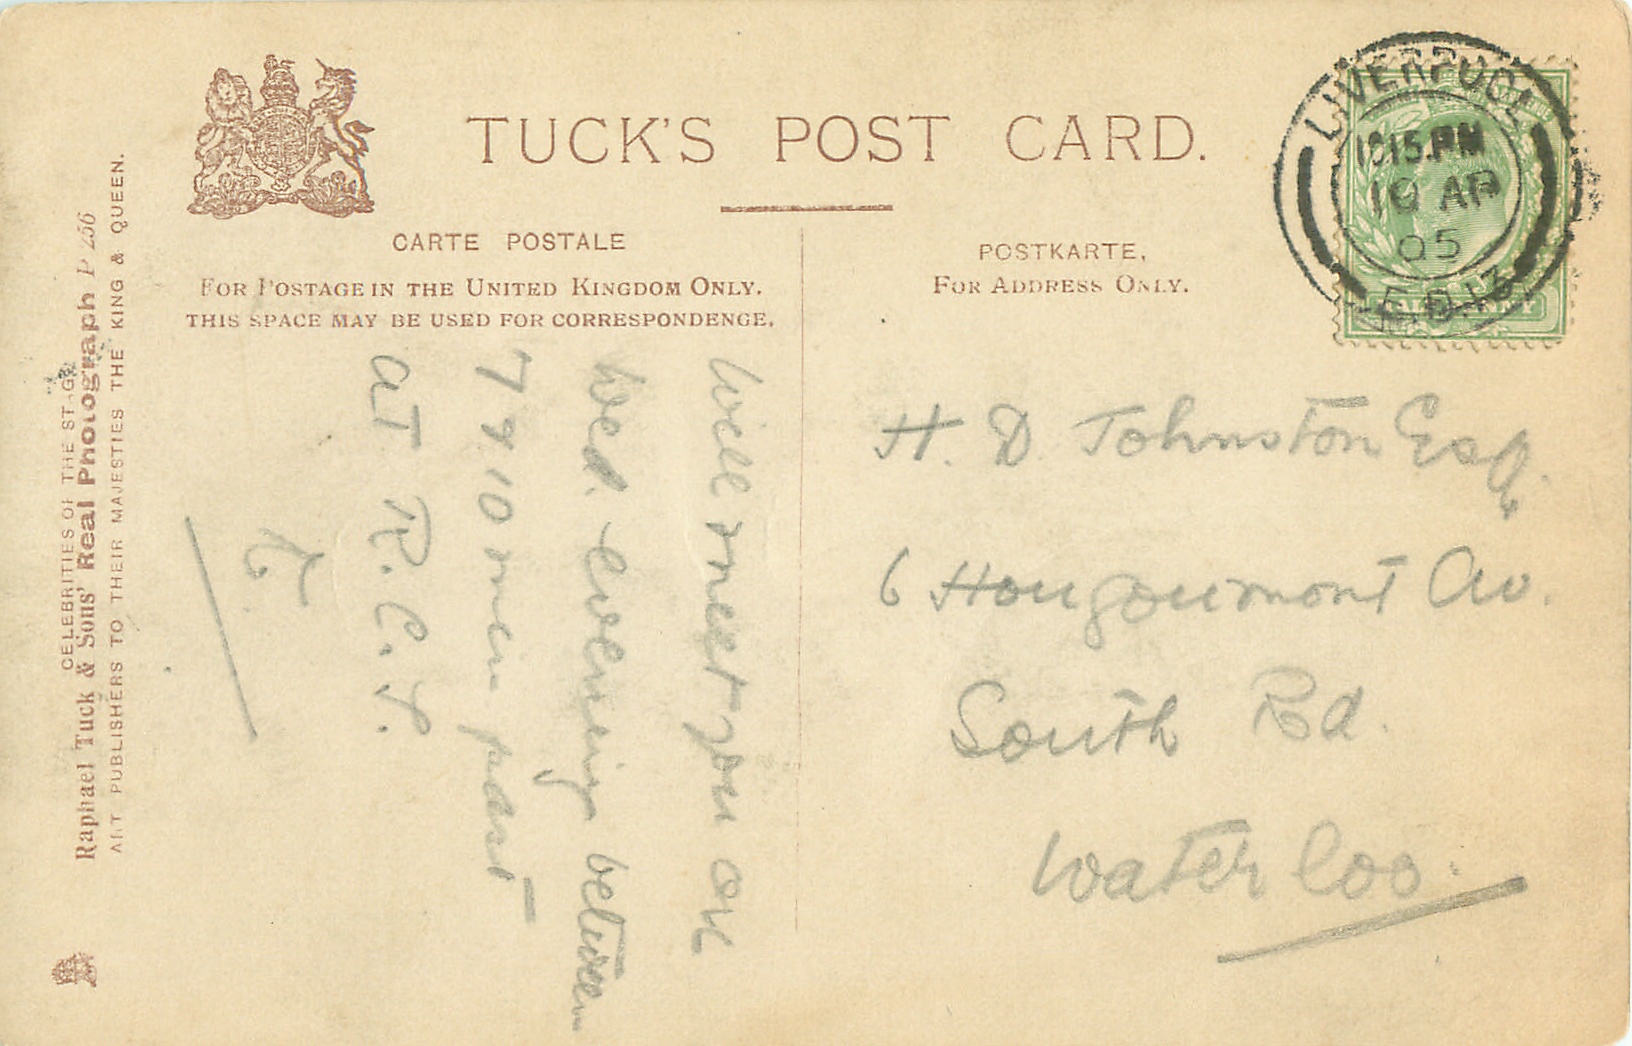 TUCK'S POST CARD.
CARTE POSTALE
FOR POSTAGE IN THE UNITED KINGDOM ONLY.
THIS SPACE MAY BE USED FOR CORRESPONDENCE.
POSTKARTE,
FOR ADDRESS ONLY.
LIVERPOOL
1015.PM
10 AP
05
CELEBRITIES OF THE STAGE
Raphael Tuck & Sons' Real Photograph P 256
ART PUBLISHERS TO THEIR MAJESTIES THE KING & QUEEN.
Will meet you on
Wed. evening between
7 & 10 min past
at R. C. S.
H. D Johnston Esq.
6 Hougoumont Av.
South Rd.
Waterloo.